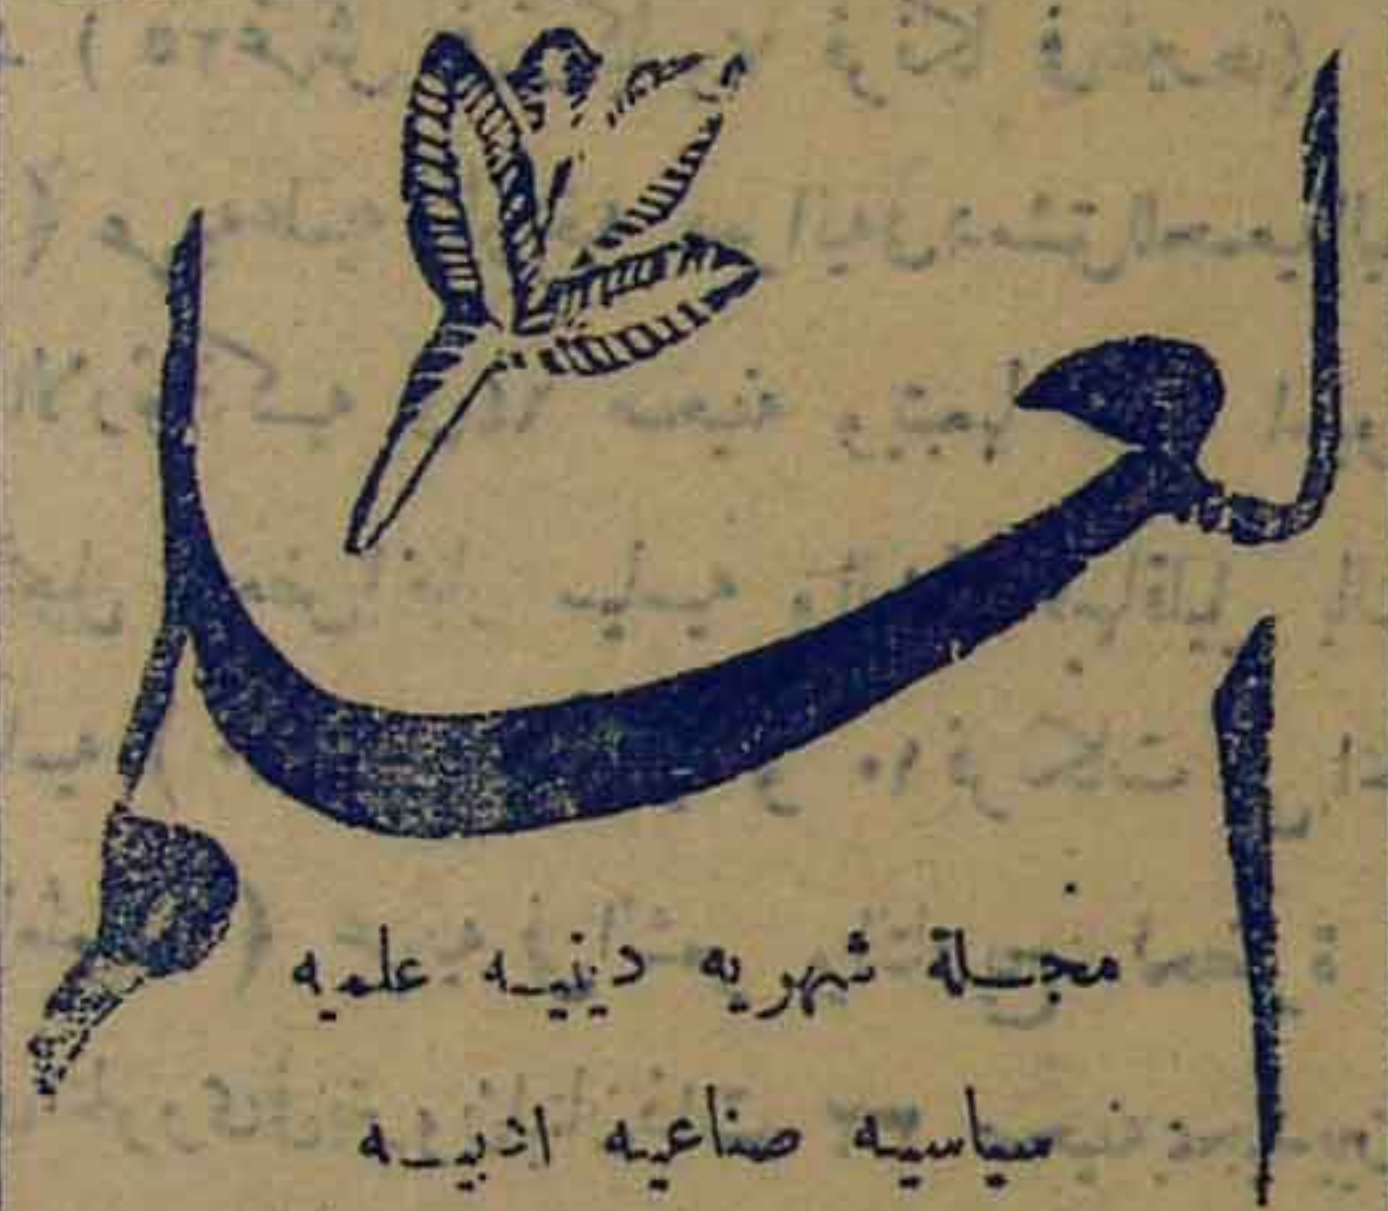 العلم
مجلة شهريه دينيه علميه
سياسيه صناعيه ادبيه